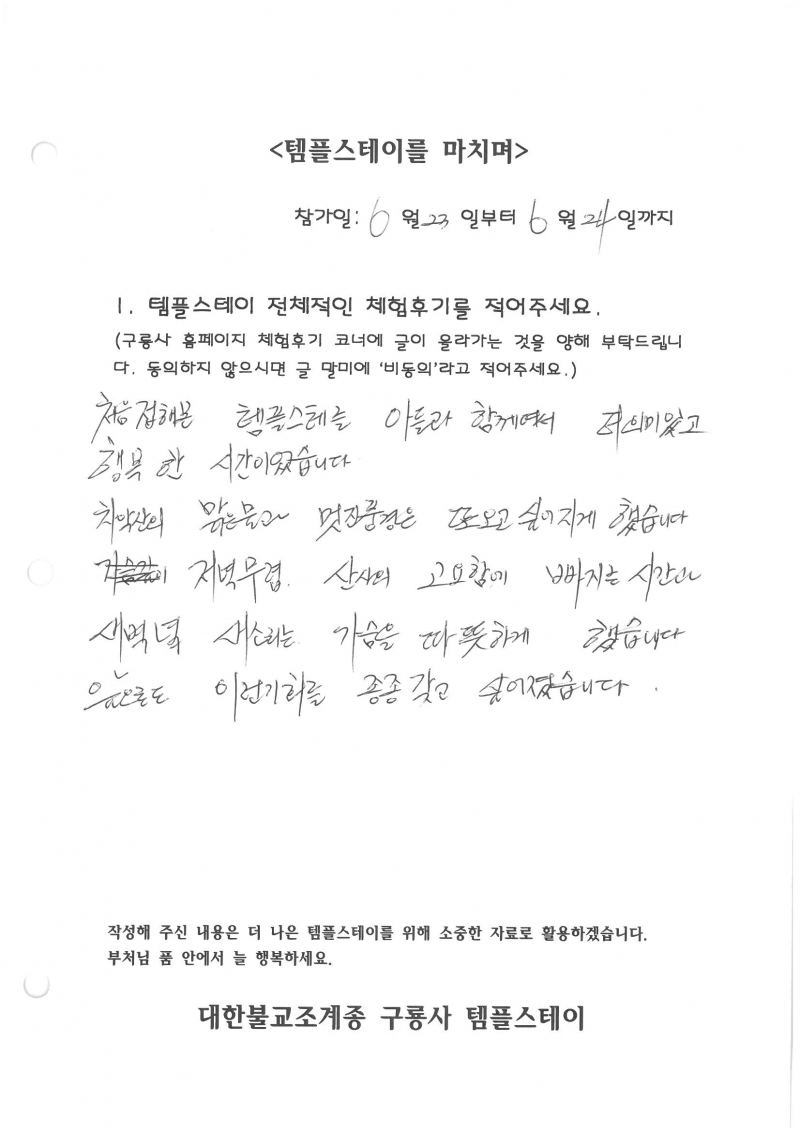 <템플스테이를 마치며>
참가일: 6 월 23 일부터 6 월 24 일까지
1. 템플스테이 전체적인 체험후기를 적어주세요.
(구룡사 홈페이지 체험후기 코너에 글이 올라가는 것을 양해 부탁드립니
다. 동의하지 않으시면 글 말미에 '비동의'라고 적어주세요.)
처음 접해본 템플스테를 아들과 함께여서 더 의미있고
행복 한 시간이였습니다
치악산의 맑은물과 멋진풍경은 또오고 싶어지게 했습니다
저녁무렵. 산사의 고요함에 빠지는 시간과
새벽녘 새소리는 가슴을 따뜻하게 했습니다
앞으로도 이런기회를 종종 갖고 싶어졌습니다.
작성해 주신 내용은 더 나은 템플스테이를 위해 소중한 자료로 활용하겠습니다.
부처님 품 안에서 늘 행복하세요.
대한불교조계종 구룡사 템플스테이